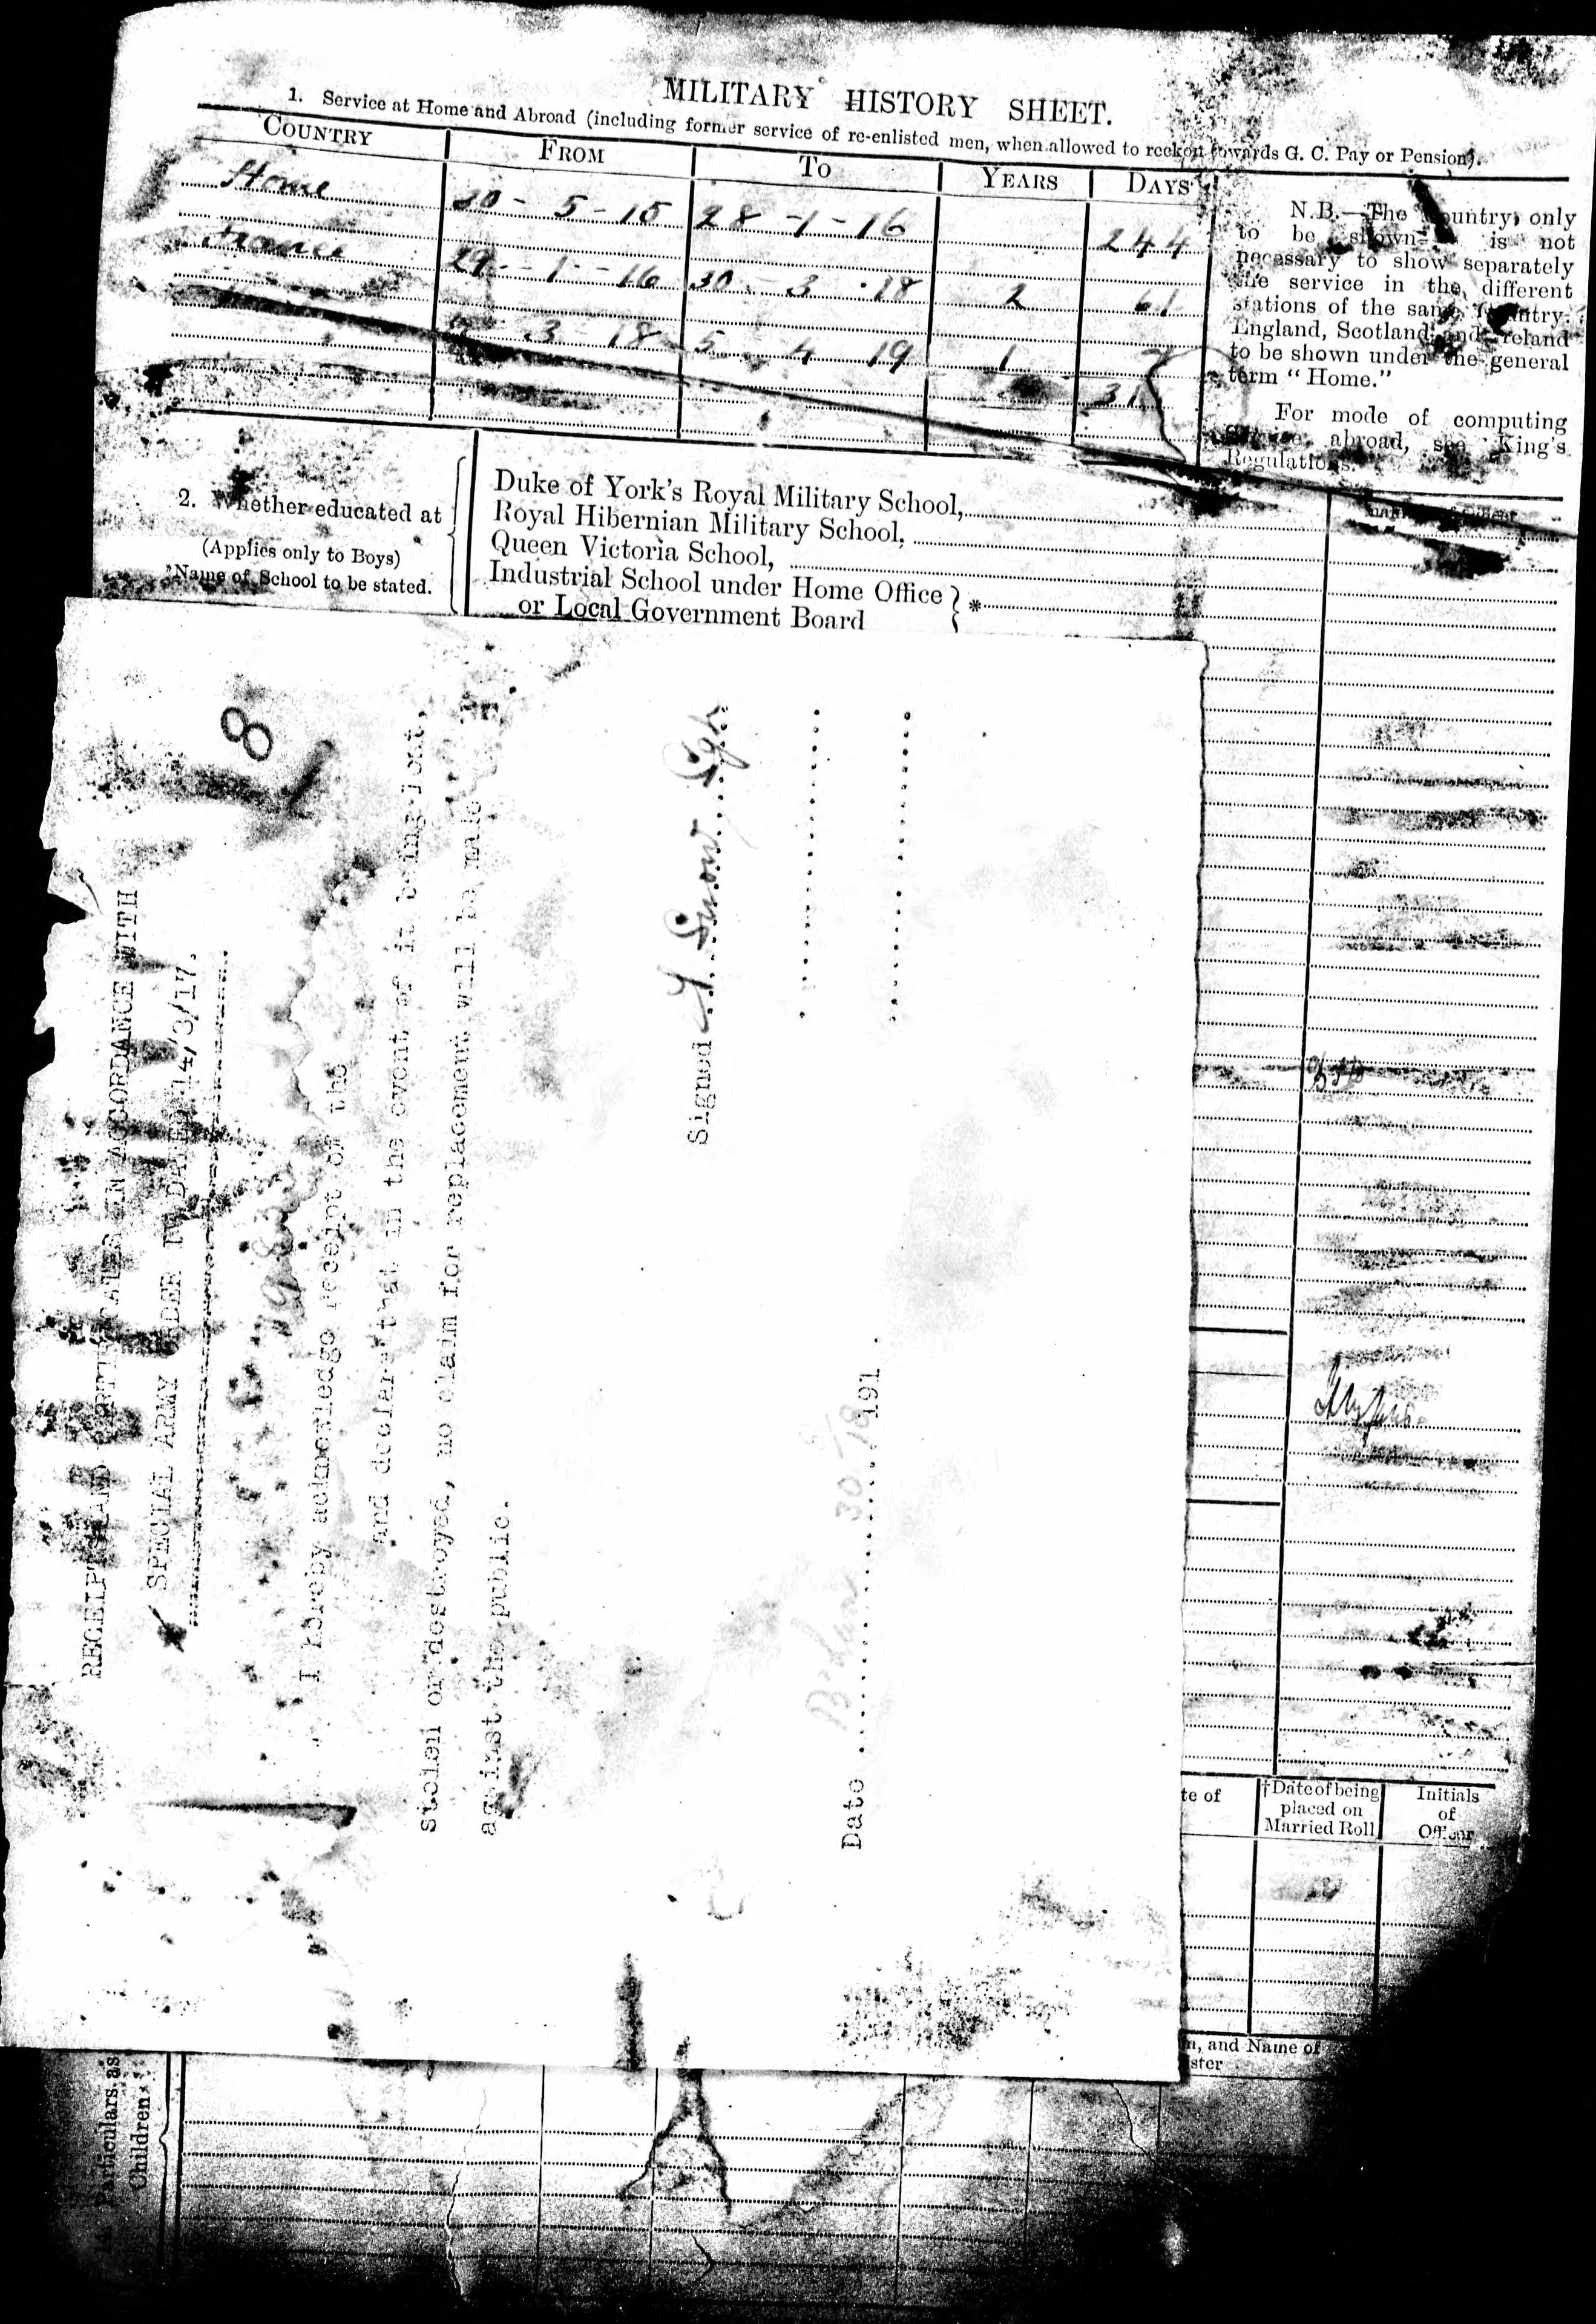 MILITARY HISTORY SHEET.
1. Service at Home and Abroad (including former service of re-enlisted men, when allowed to reckon towards G. C. Pay or Pension).
COUNTRY FROM TO YEARS DAYS
Home 30 - 5 - 15 28 - 1 - 16 244
France 29 - 1 - 16 30 - 3 - 18 2 61
3 - 18 5 4 19 1
31
N.B.—The country only
to be shown is not
necessary to show separately
the service in the different
stations of the same country
England, Scotland and Ireland
to be shown under the general
term "Home."
For mode of computing
service abroad, see King's
Regulations.
2. Whether educated at
(Applies only to Boys)
*Name of School to be stated.
Duke of York's Royal Military School,
Royal Hibernian Military School,
Queen Victoria School,
Industrial School under Home Office
or Local Government Board
*
8
RECEIPTS AND CERTIFICATES IN ACCORDANCE WITH
SPECIAL ARMY ORDER IV DATED 14/3/17.
I hereby acknowledge receipt of the
and declare that in the event of it being lost,
stolen or destroyed, no claim for replacement will be made
against the public.
Signed Snow
Date 30 /18 191 .
te of
†Date of being
placed on
Married Roll
Initials
of
Officer
n, and Name of
ster
Particulars as
Children